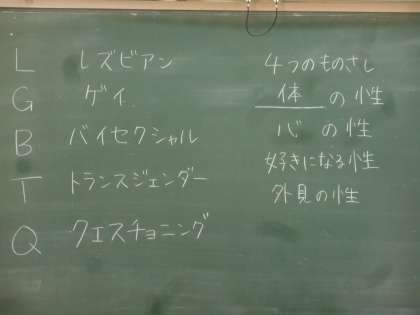 L レズビアン
G ゲイ
B バイセクシャル
T トランスジェンダー
Q クエスチョニング
4つのものさし
体 の 性
心 の 性
好きになる性
外見の性